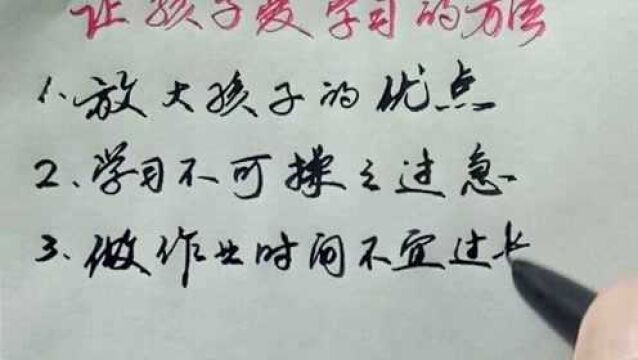 让孩子爱学习的方法
1、放大孩子的优点
2、学习不可操之过急
3、做作业时间不宜过长